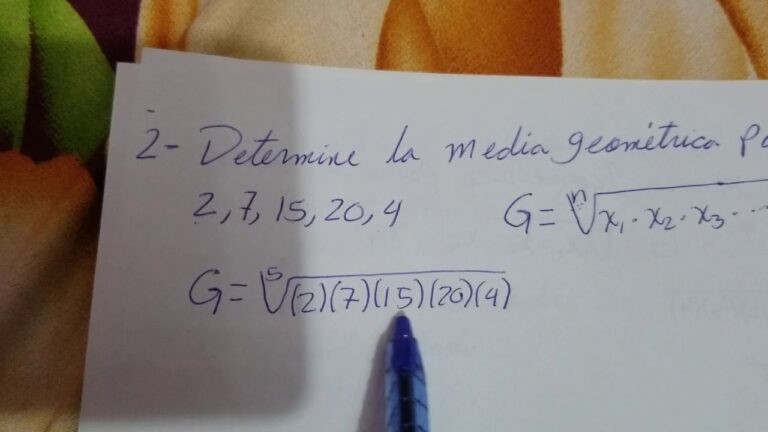 2- Determine la media geométrica
2, 7, 15, 20, 4 G = ⁿ√x₁ · x₂ · x₃ · ...
G = ⁵√(2)(7)(15)(20)(4)